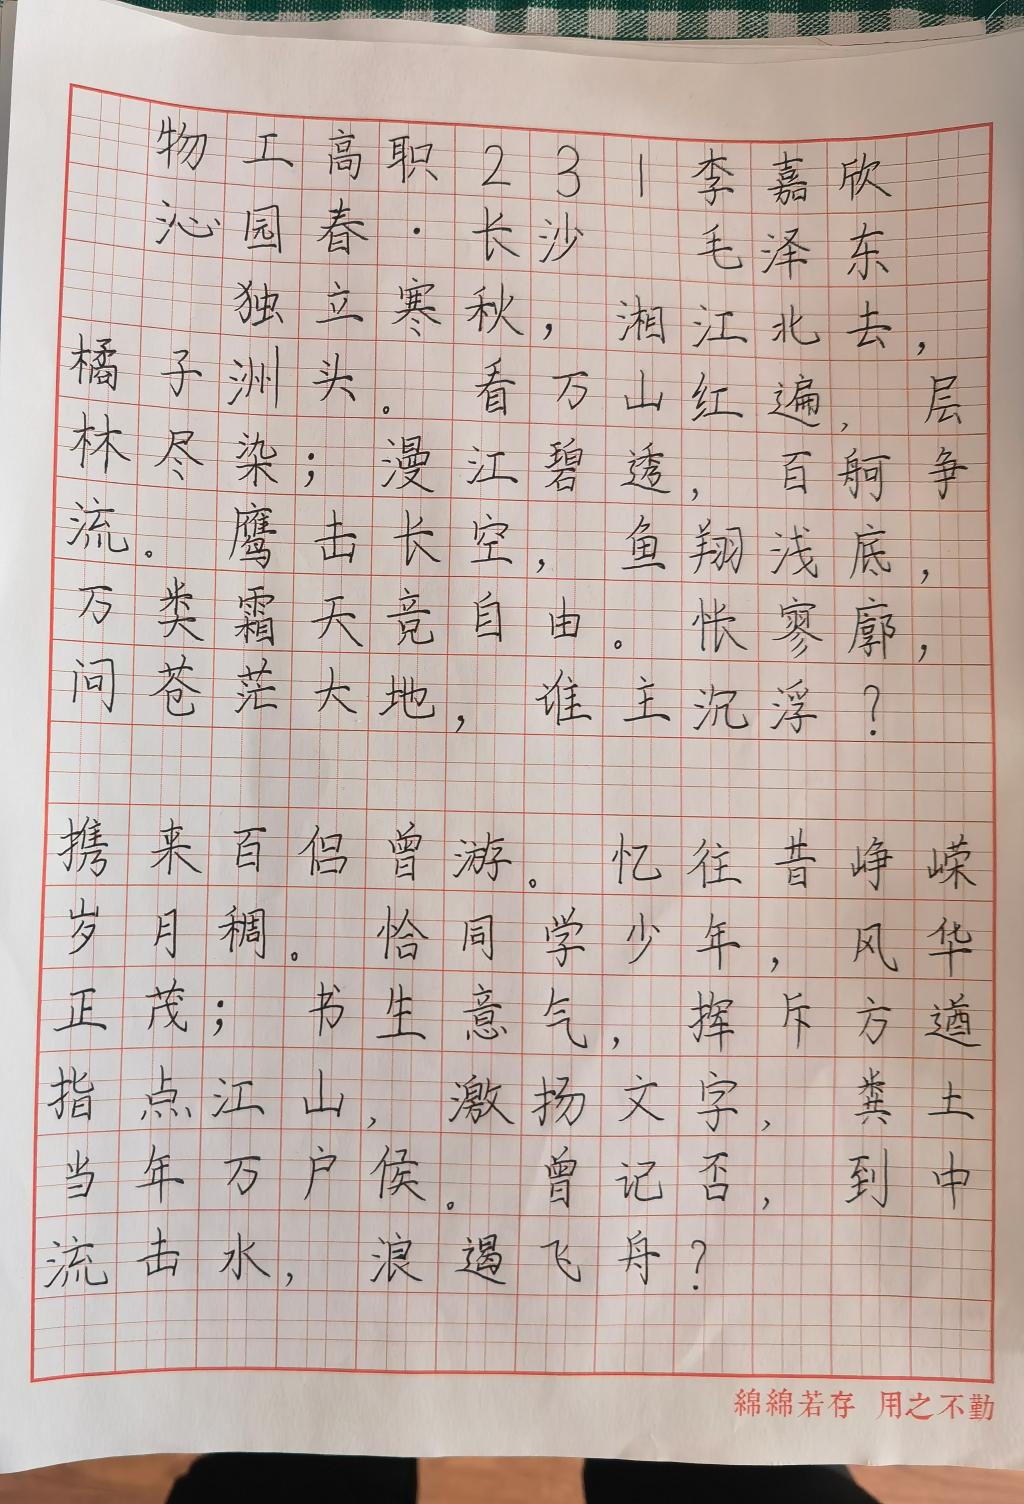 物工高职231李嘉欣
沁园春·长沙 毛泽东
独立寒秋，湘江北去，
橘子洲头。看万山红遍，层
林尽染；漫江碧透，百舸争
流。鹰击长空，鱼翔浅底，
万类霜天竞自由。怅寥廓，
问苍茫大地，谁主沉浮？
携来百侣曾游。忆往昔峥嵘
岁月稠。恰同学少年，风华
正茂；书生意气，挥斥方遒
指点江山，激扬文字，粪土
当年万户侯。曾记否，到中
流击水，浪遏飞舟？
綿綿若存 用之不勤